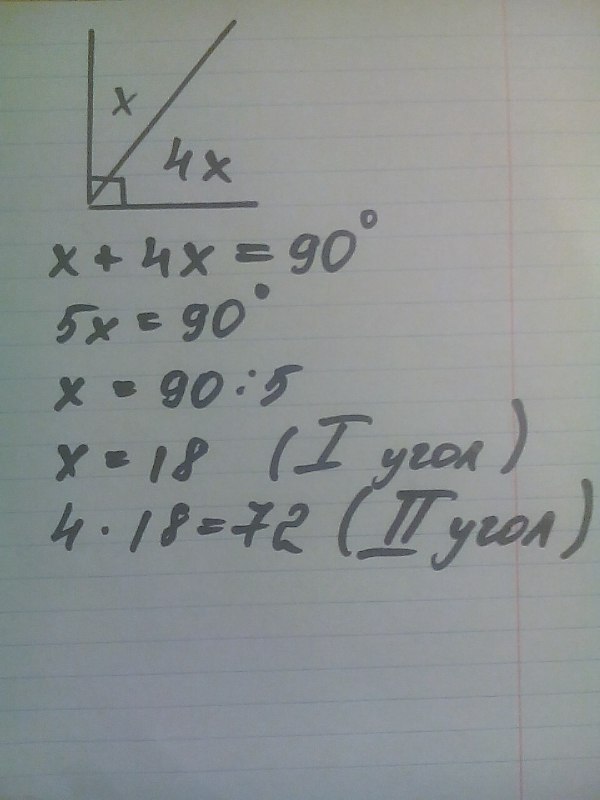 x
4x
x + 4x = 90°
5x = 90°
x = 90 : 5
x = 18 (I угол)
4 · 18 = 72 (II угол)